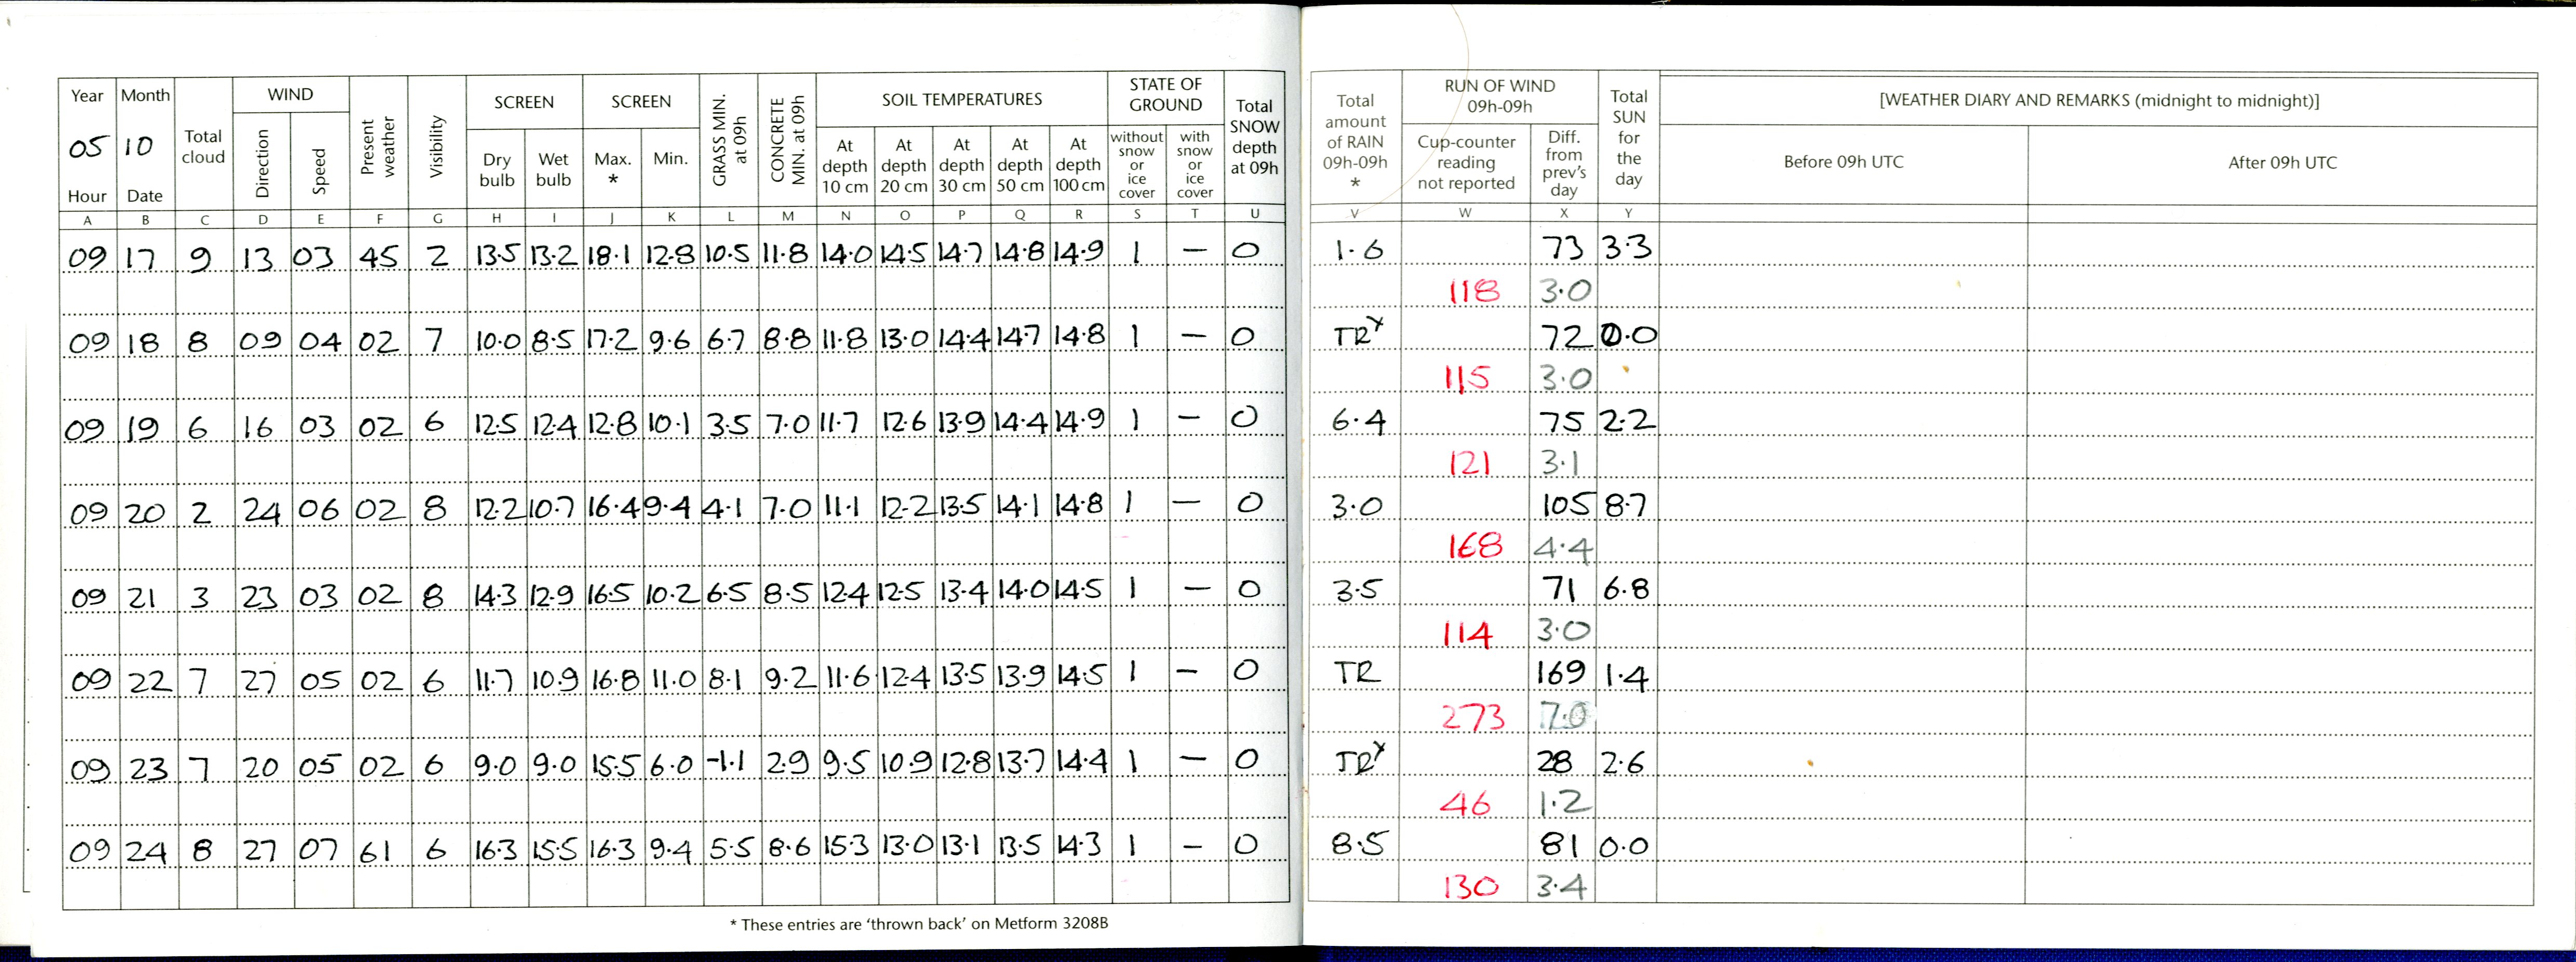 Year Month Total cloud WIND Present weather Visibility SCREEN SCREEN GRASS MIN. at 09h CONCRETE MIN. at 09h SOIL TEMPERATURES STATE OF GROUND Total SNOW depth at 09h Total amount of RAIN 09h-09h * RUN OF WIND 09h-09h Total SUN for the day [WEATHER DIARY AND REMARKS (midnight to midnight)]
05 10 Direction Speed Dry bulb Wet bulb Max. * Min. At depth 10 cm At depth 20 cm At depth 30 cm At depth 50 cm At depth 100 cm without snow or ice cover with snow or ice cover Cup-counter reading not reported Diff. from prev's day Before 09h UTC After 09h UTC
Hour Date
A B C D E F G H I J K L M N O P Q R S T U V W X Y
09 17 9 13 03 45 2 13.5 13.2 18.1 12.8 10.5 11.8 14.0 14.5 14.7 14.8 14.9 1 — 0 1.6 73 3.3
118 3.0
09 18 8 09 04 02 7 10.0 8.5 17.2 9.6 6.7 8.8 11.8 13.0 14.4 14.7 14.8 1 — 0 TRx 72 0.0
115 3.0
09 19 6 16 03 02 6 12.5 12.4 12.8 10.1 3.5 7.0 11.7 12.6 13.9 14.4 14.9 1 — 0 6.4 75 2.2
121 3.1
09 20 2 24 06 02 8 12.2 10.7 16.4 9.4 4.1 7.0 11.1 12.2 13.5 14.1 14.8 1 — 0 3.0 105 8.7
168 4.4
09 21 3 23 03 02 8 14.3 12.9 16.5 10.2 6.5 8.5 12.4 12.5 13.4 14.0 14.5 1 — 0 3.5 71 6.8
114 3.0
09 22 7 27 05 02 6 11.7 10.9 16.8 11.0 8.1 9.2 11.6 12.4 13.5 13.9 14.5 1 — 0 TR 169 1.4
273 7.0
09 23 7 20 05 02 6 9.0 9.0 15.5 6.0 -1.1 2.9 9.5 10.9 12.8 13.7 14.4 1 — 0 TRx 28 2.6
46 1.2
09 24 8 27 07 61 6 16.3 15.5 16.3 9.4 5.5 8.6 15.3 13.0 13.1 13.5 14.3 1 — 0 8.5 81 0.0
130 3.4
* These entries are 'thrown back' on Metform 3208B